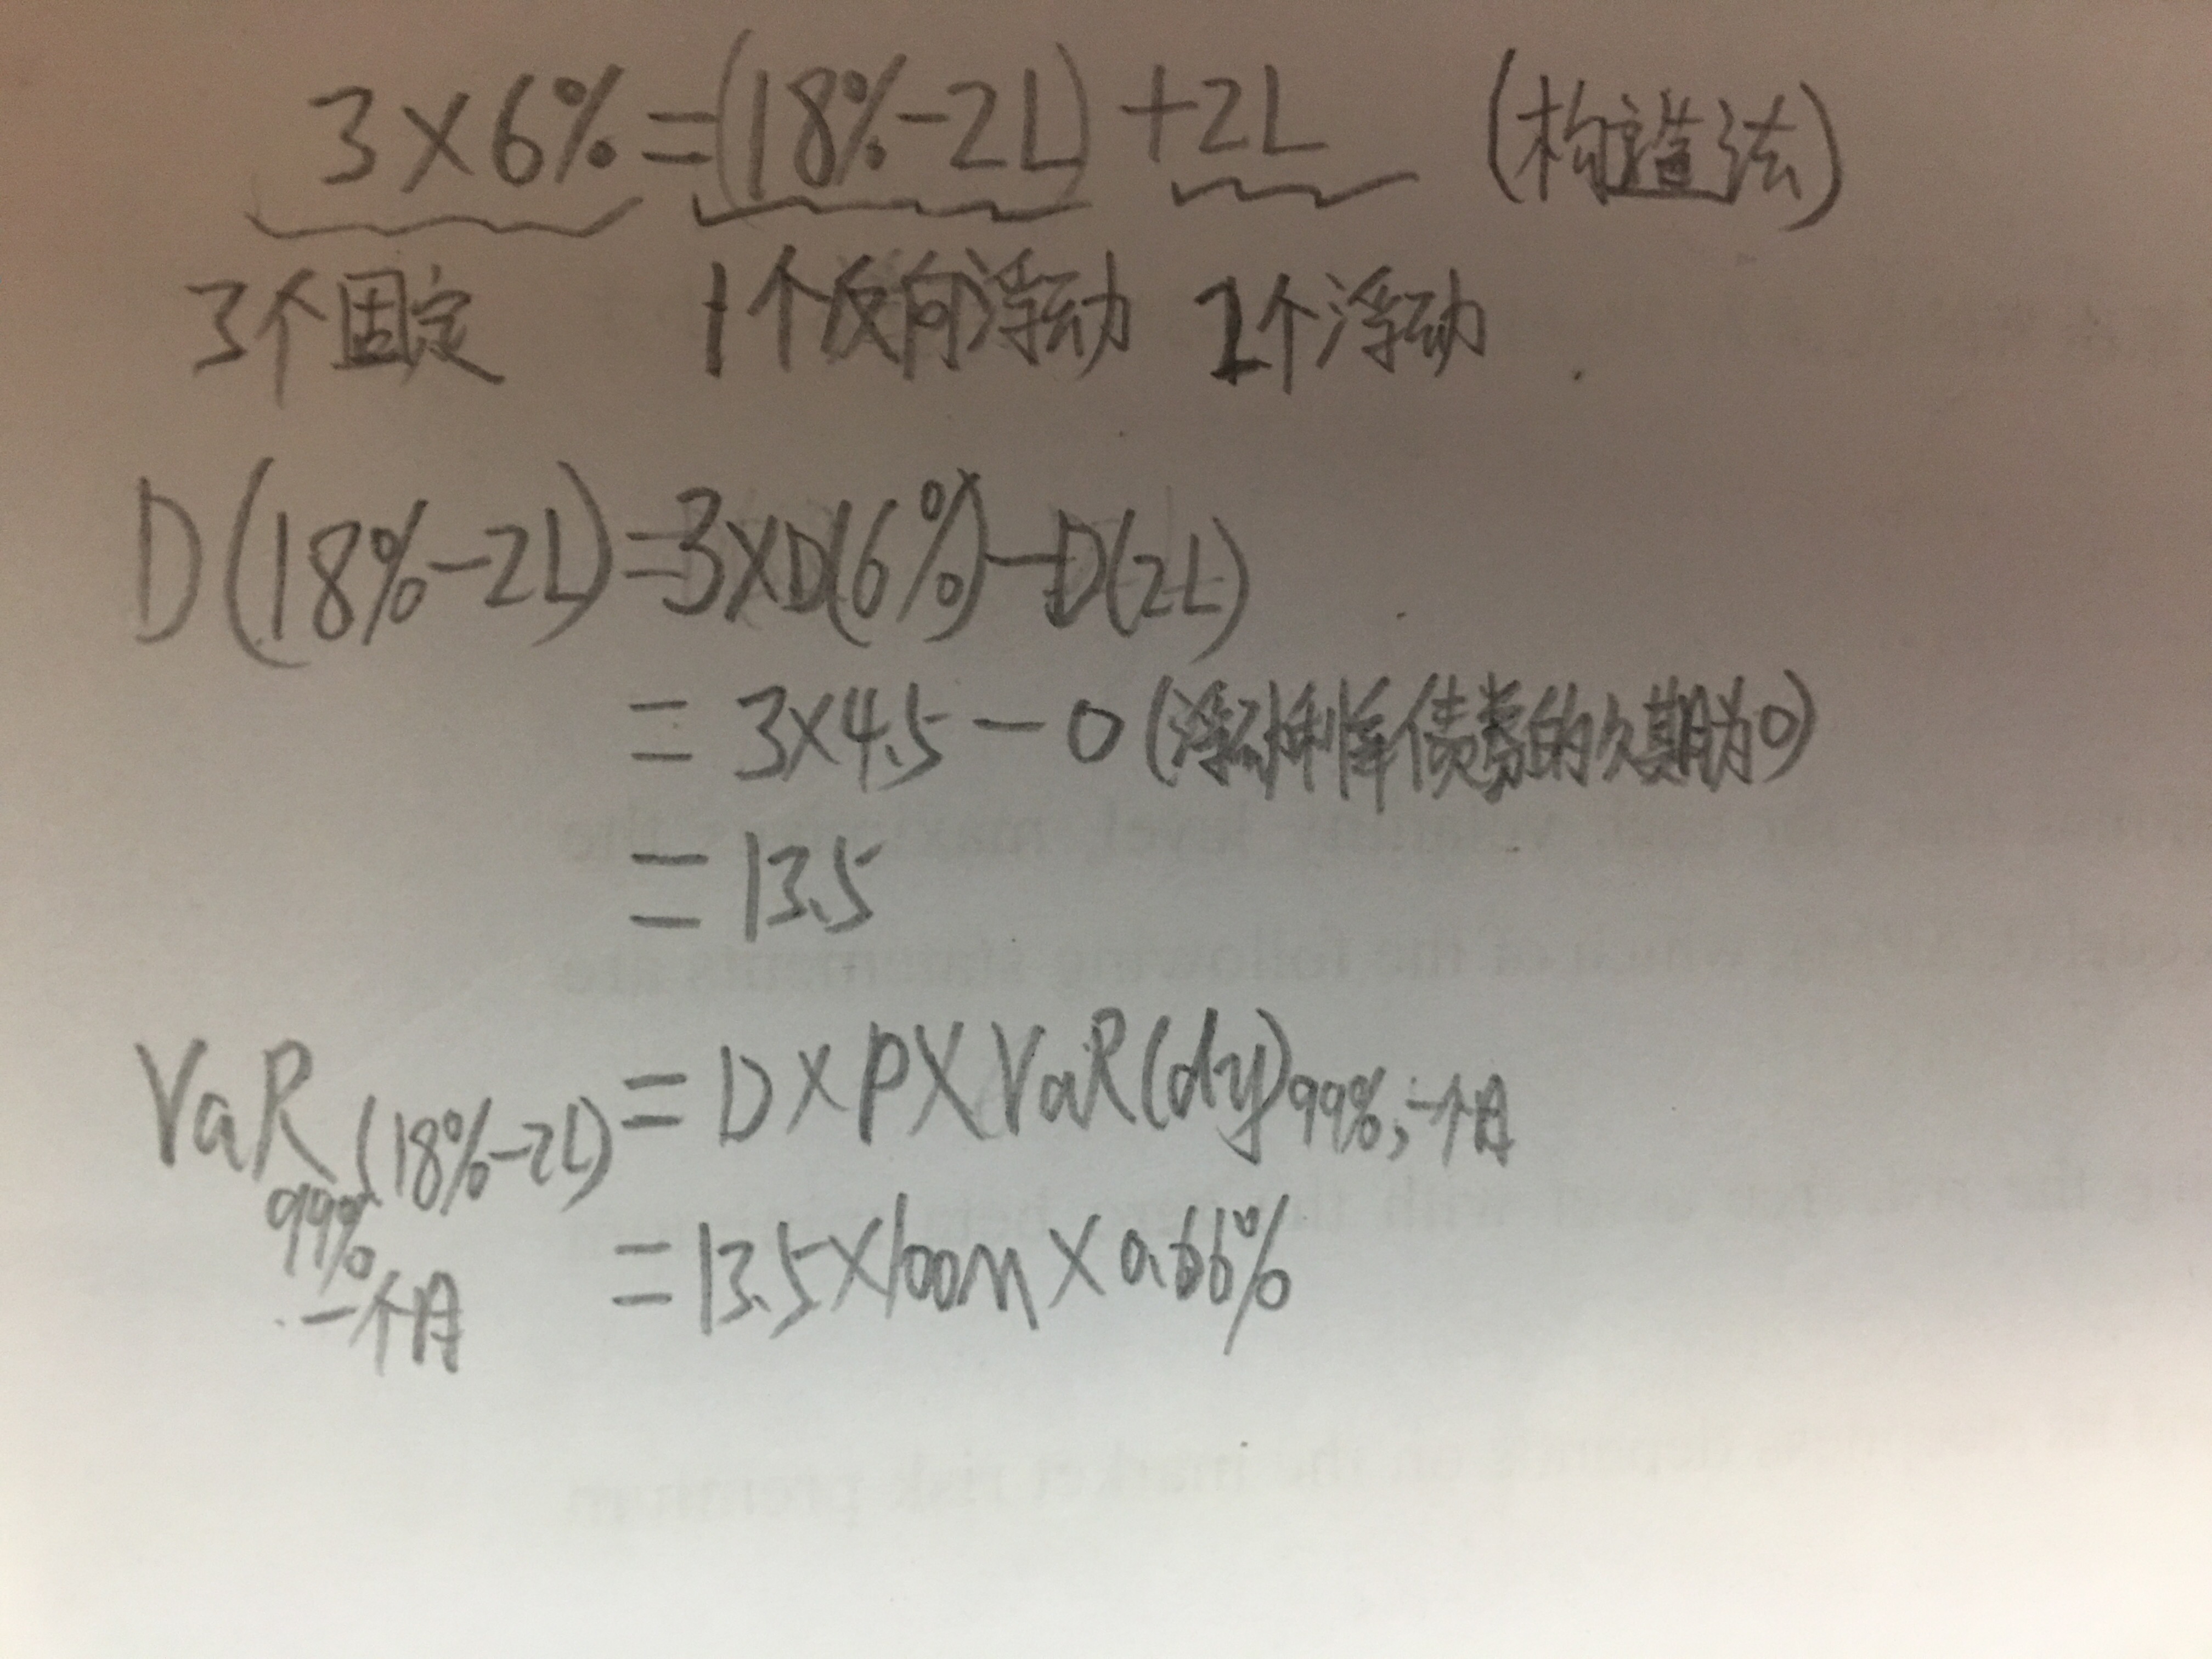 3×6%=(18%-2L)+2L (构造法)
3个固定 1个反向浮动 2个浮动
D(18%-2L)=3×D(6%)-D(2L)
=3×4.5-0(浮动利率债券的久期为0)
=13.5
VaR(18%-2L)=D×P×VaR(dy)99%,一个月
99%
一个月
=13.5×100m×0.66%